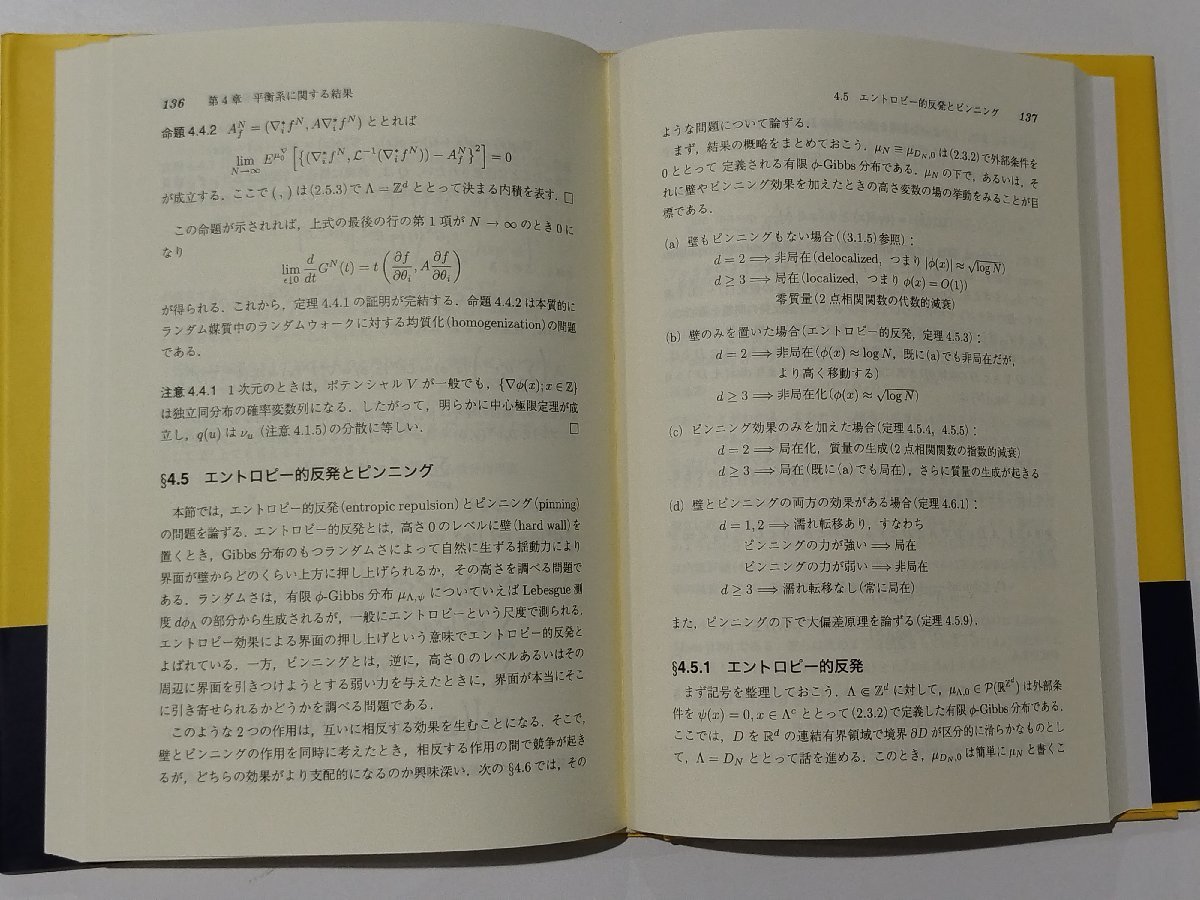 136 第4章 平衡系に関する結果
命題 4.4.2 $A_f^N = (\nabla_i^* f^N, A\nabla_i^* f^N)$ ととれば
$\lim_{N\to\infty} E^{\mu_0^\nabla}\left[\left\{(\nabla_i^* f^N, \mathcal{L}^{-1}(\nabla_i^* f^N)) - A_f^N\right\}^2\right] = 0$
が成立する．ここで ( , ) は (2.5.3) で $\Lambda = \mathbb{Z}^d$ ととって決まる内積を表す．□
この命題が示されれば，上式の最後の行の第1項が $N \to \infty$ のとき0に
なり
$\lim_{\epsilon\downarrow 0} \frac{d}{dt} G^N(t) = t\left(\frac{\partial f}{\partial\theta_i}, A\frac{\partial f}{\partial\theta_i}\right)$
が得られる．これから，定理 4.4.1 の証明が完結する．命題 4.4.2 は本質的に
ランダム媒質中のランダムウォークに対する均質化(homogenization)の問題
である．
注意 4.4.1 1次元のときは，ポテンシャル $V$ が一般でも，$\{\nabla\phi(x); x \in \mathbb{Z}\}$
は独立同分布の確率変数列になる．したがって，明らかに中心極限定理が成
立し，$q(u)$ は $\nu_u$ (注意 4.1.5) の分散に等しい． □
§4.5 エントロピー的反発とピンニング
本節では，エントロピー的反発(entropic repulsion)とピンニング(pinning)
の問題を論ずる．エントロピー的反発とは，高さ0のレベルに壁(hard wall)を
置くとき，Gibbs 分布のもつランダムさによって自然に生ずる揺動力により
界面が壁からどのくらい上方に押し上げられるか，その高さを調べる問題で
ある．ランダムさは，有限 $\phi$-Gibbs 分布 $\mu_{\Lambda,\psi}$ についていえば Lebesgue 測
度 $d\phi_\Lambda$ の部分から生成されるが，一般にエントロピーという尺度で測られる．
エントロピー効果による界面の押し上げという意味でエントロピー的反発と
よばれている．一方，ピンニングとは，逆に，高さ0のレベルあるいはその
周辺に界面を引きつけようとする弱い力を与えたときに，界面が本当にそこ
に引き寄せられるかどうかを調べる問題である．
このような2つの作用は，互いに相反する効果を生むことになる．そこで，
壁とピンニングの作用を同時に考えたとき，相反する作用の間で競争が起き
るが，どちらの効果がより支配的になるのか興味深い．次の §4.6 では，その
4.5 エントロピー的反発とピンニング 137
ような問題について論ずる．
まず，結果の概略をまとめておこう．$\mu_N \equiv \mu_{D_N,0}$ は(2.3.2)で外部条件を
0 ととって 定義される有限 $\phi$-Gibbs 分布である．$\mu_N$ の下で，あるいは，そ
れに壁やピンニング効果を加えたときの高さ変数の場の挙動をみることが目
標である．
(a) 壁もピンニングもない場合((3.1.5)参照)：
$d = 2 \Longrightarrow$ 非局在(delocalized，つまり $|\phi(x)| \approx \sqrt{\log N}$)
$d \geq 3 \Longrightarrow$ 局在(localized，つまり $\phi(x) = O(1)$)
零質量(2点相関関数の代数的減衰)
(b) 壁のみを置いた場合(エントロピー的反発，定理 4.5.3)：
$d = 2 \Longrightarrow$ 非局在($\phi(x) \approx \log N$，既に(a)でも非局在だが，
より高く移動する)
$d \geq 3 \Longrightarrow$ 非局在化($\phi(x) \approx \sqrt{\log N}$)
(c) ピンニング効果のみを加えた場合(定理 4.5.4，4.5.5)：
$d = 2 \Longrightarrow$ 局在化，質量の生成(2点相関関数の指数的減衰)
$d \geq 3 \Longrightarrow$ 局在(既に(a)でも局在)，さらに質量の生成が起きる
(d) 壁とピンニングの両方の効果がある場合(定理 4.6.1)：
$d = 1, 2 \Longrightarrow$ 濡れ転移あり，すなわち
ピンニングの力が強い $\Longrightarrow$ 局在
ピンニングの力が弱い $\Longrightarrow$ 非局在
$d \geq 3 \Longrightarrow$ 濡れ転移なし(常に局在)
また，ピンニングの下で大偏差原理を論ずる(定理 4.5.9)．
§4.5.1 エントロピー的反発
まず記号を整理しておこう．$\Lambda \Subset \mathbb{Z}^d$ に対して，$\mu_{\Lambda,0} \in \mathcal{P}(\mathbb{R}^{\mathbb{Z}^d})$ は外部条
件を $\psi(x) = 0, x \in \Lambda^c$ ととって(2.3.2)で定義した有限 $\phi$-Gibbs 分布である．
ここでは，$D$ を $\mathbb{R}^d$ の連結有界領域で境界 $\partial D$ が区分的に滑らかなものとし
て，$\Lambda = D_N$ ととって話を進める．このとき，$\mu_{D_N,0}$ は簡単に $\mu_N$ と書くこ